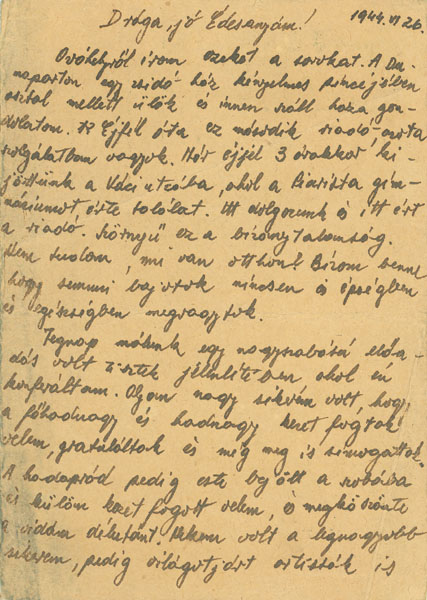 1944. VI 26.
Drága, jó Édesanyám!
Óvóhelyről írom ezeket a sorokat. A Du-
naparton egy zsidó ház kényelmes pincéjében
asztal mellett ülök és innen száll haza gon-
dolatom. Éjfél óta ez második riadó, azóta
szolgálatban vagyok. Már éjjel 3 órakkor ki-
jöttünk a Váci utcába, ahol a Piarista gim-
náziumot érte találat. Itt dolgozunk és itt ért
a riadó. Szörnyű ez a bizonytalanság.
Nem tudom, mi van otthon! Bízom benne
hogy semmi bajotok nincsen és épségben
és egészségben megvagytok.
Tegnap nálunk egy nagyszabású előa-
dás volt tisztek jelenlétében, ahol én
konferáltam. Olyan nagy sikerem volt, hogy
a főhadnagy és hadnagy kezet fogtak
velem, gratuláltak és még meg is simogattak.
A hadapród pedig este bejött a szobába
és külön kezet fogott velem, és megköszönte
a vidám délutánt. Nekem volt a legnagyobb
sikerem, pedig világotjárt artisták is